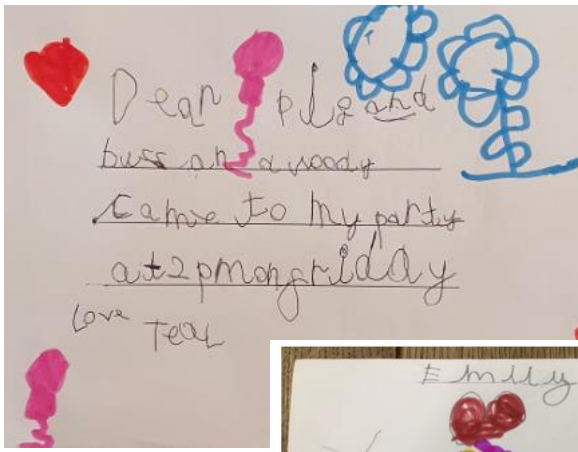 Dear plg and
buss an a woody
came to my party
at 2 pm on friday
Love Teal
Emily